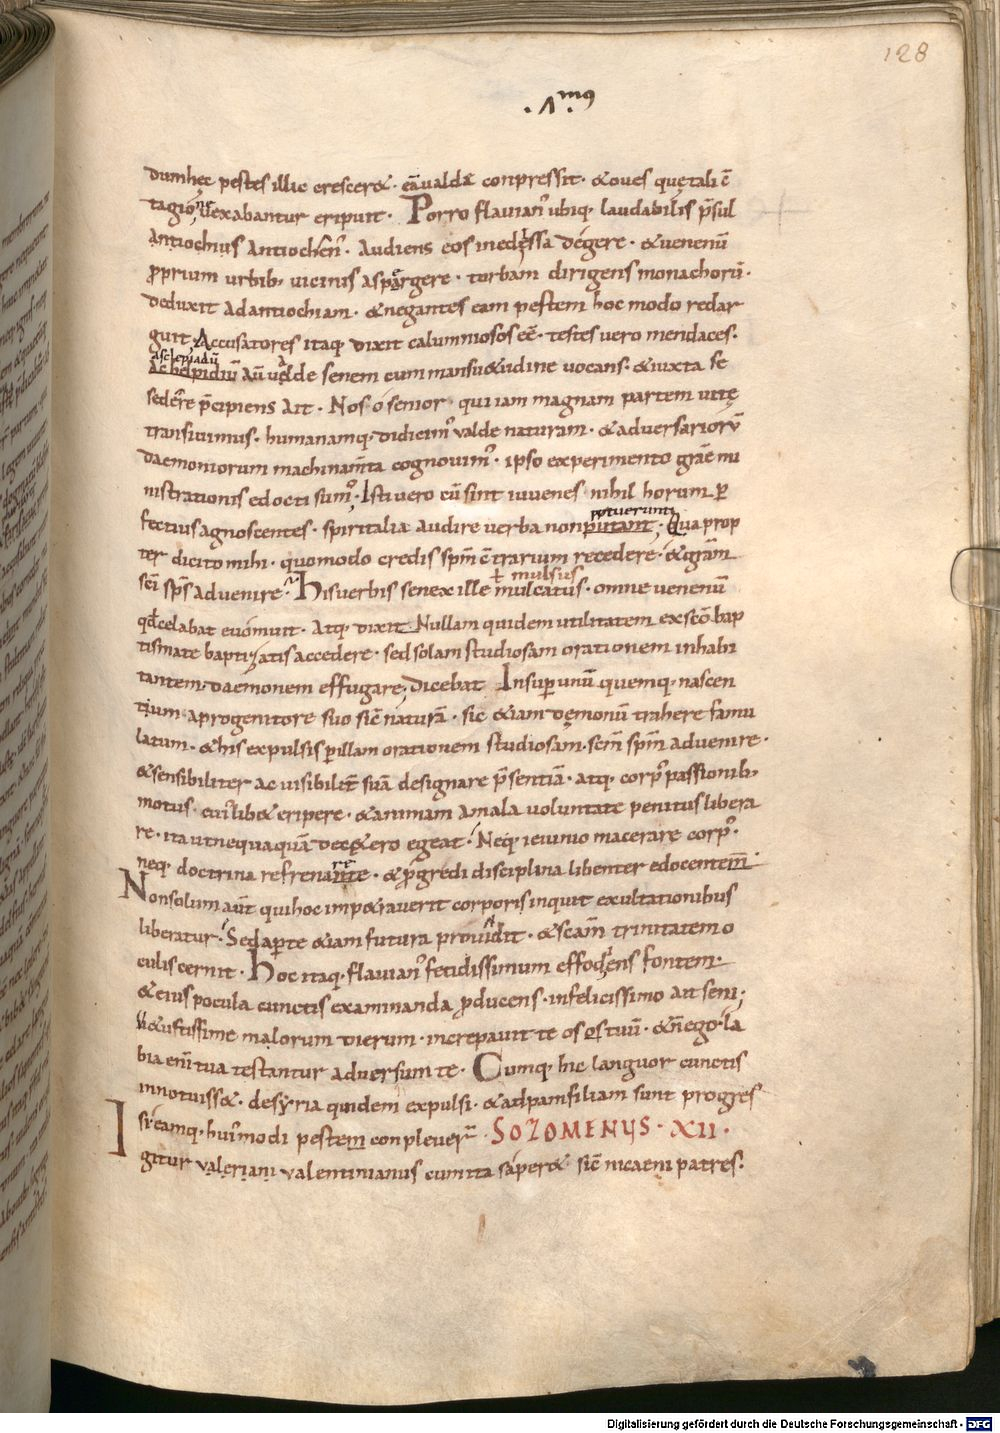 128
·Λ·m9
dumhęc pestes illic crescer&· eāualdæ conpressit· &oues quętali c̄
tagioneuexabantur eripuit· Porro flauian᾿ ubiq· laudabilis p̄sul
antiochius antiochen᾿· audiens eos inedessa degere· &uenenū
proprium urbib· uicinis aspargere· torbam dirigens monachorū·
deduxit adantiochiam· &negantes eam pestem hoc modo redar
guit· Accusatores itaq· dixit calumniosos eē· testes uero mendaces·
asclepiadū
achelpidiū aū ualde senem cum mansu&udine uocans· &iuxta se
sedere p̄cipiens ait· Nos o senior quiiam magnam partem uitę
transiuimus· humanamq· didicim᾿ valde naturam· &aduersariorū
daemoniorum machinam̄ta cognouim᾿· ipso experimento grāe mi
nistrationis edocti sum᾿· Isti uero cū sint iuuenes nihil horum p
fectius agnoscentes· spiritalia audire uerba non putant· Qua prop
potuerunt
ter dicito mihi· quomodo credis sp̄m c̄trarium recedere· &grām
sc̄i sp̄s aduenire· His uerbis senex ille mulcatus· omne uenenū
+ mulsus
qd celabat euomuit· atq· dixit Nullam quidem utilitatem exsc̄o bap
tismate baptizatis accedere· sed solam studiosam orationem inhabi
tantem daemonem effugare; Dicebat Insup unū quemq· nascen
tium aprogenitore suo sic̄ naturā· sic &iam dęmonū trahere famu
latum· &his expulsis p illam orationem studiosam· sc̄m sp̄m aduenire·
&sensibiliter ac uisibilit̄ suā designare p̄sentiā· atq· corp᾿ passionib·
motus· cuī lib& eripere· &animam amala uoluntate penitus libera
re· ita utnequaquā dec&ero egeat· Neq· ieiunio macerare corp᾿·
neq· doctrina refrenante· &progredi disciplina libenter edocentem̄
re
Nonsolum aūt quihoc imp&rauerit corporis inquit exultationibus
liberatur· Sed aperte &iam futura prouidit· &sc̄am trinitatem o
culis cernit· Hoc itaq· flauian᾿ fetidissimum effodiens fontem·
&eius pocula cunctis examinanda producens· infelicissimo ait seni;
U&ustissime malorum dierum· increpauit te os os tuū· &n̄ ego· la
bia en̄i tua testantur aduersum te· Cumq· hic languor cunctis
innotuiss&· desyria quidem expulsi· &adpamfiliam sunt progres
si· eamq· hui᾿modi pestem conpleuer̄· SOZOMENUS· XII·
Igitur valeriani valentinianus cum ita saper& sic̄ nicaeni patres·
Digitalisierung gefördert durch die Deutsche Forschungsgemeinschaft - DFG